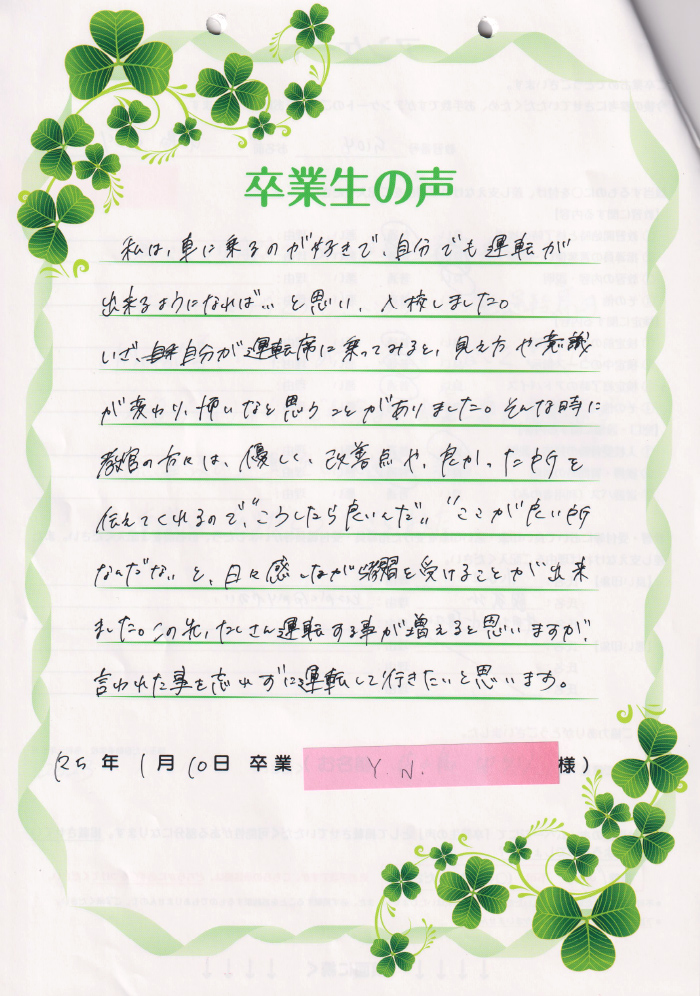 卒業生の声
私は、車に乗るのが好きで、自分でも運転が
出来るようになれば…と思い、入校しました。
いざ、自分が運転席に乗ってみると、見え方や意識
が変わり、怖いなと思うことがありました。そんな時に
教官の方々は、優しく、改善点や、良かった所を
伝えてくれるので、"こうしたら良いんだ" "ここが良い所
なんだな"と、日々感じながら教習を受けることが出来
ました。この先、たくさん運転する事が増えると思いますが、
言われた事を忘れずに運転して行きたいと思います。
R5年 1月 10日 卒業 Y.N. 様)